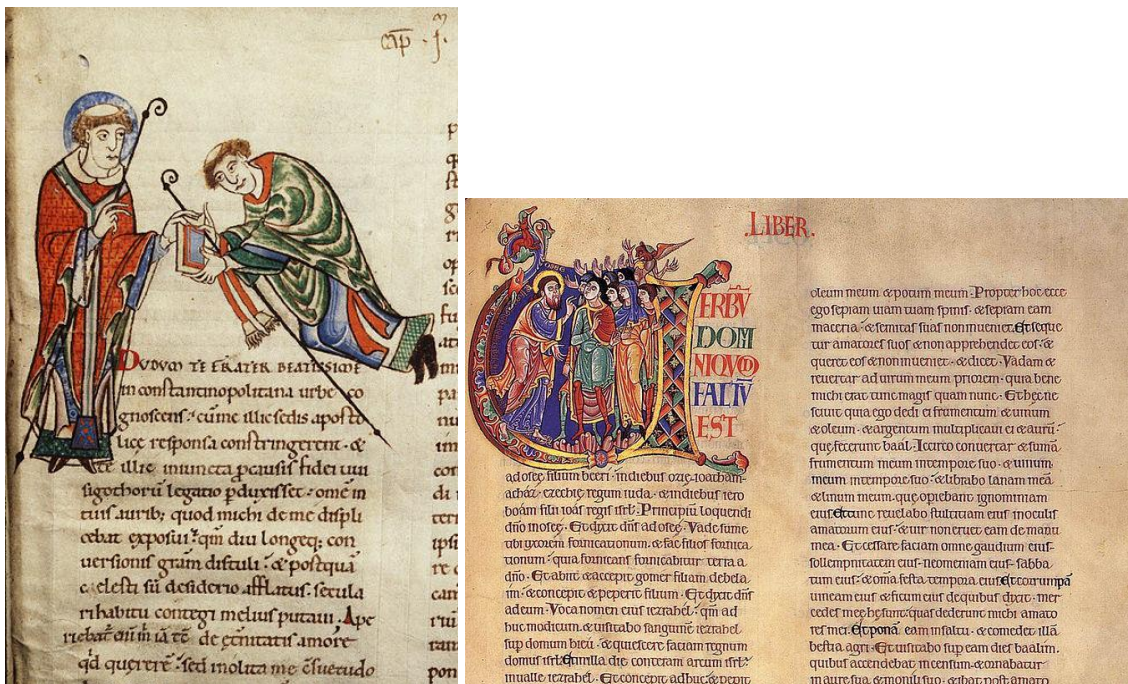 cap̄ · j ·
DUDUM TE FRATER BEATISSIME
in constantinopolitana urbe co
gnoscens · cūme illic sedis aposto
licę responsa constringerent · &
te illic iniuncta ꝓ causis fidei uui
sigothorū legatio ꝑduxisset · omē in
tuis aurib; quod michi de me displi
cebat exposui · qm̄ diu longeq; con
versionis grām distuli · & postquā
cęlesti sū desiderio afflatus · sęcula
ri habitu contegi melius putaui · Ape
riebat de ęt̄nitatis amore
qd̄ quererē · sed inolita me c̄suetudo
.LIBER.
VERBŪ
DOMI
NI QUOD
FACTŪ
EST
ad osee filium beeri · in diebus ozię · ioatham ·
achaz · ezechię regum iuda · & in diebus iero
boam filii ioas regis isrł · Principiū loquendi
dn̄o in osee · Et dixit dn̄s ad osee · Vade sume
tibi uxorem fornicationum · & fac filios fornica
tionum · quia fornicans fornicabitur terra a
dn̄o · Et abiit & accepit gomer filiam debela
im · & concepit & peperit filium · Et dixit dn̄s
ad eum · Voca nomen eius iezrahel · qm̄ ad
huc modicum · & uisitabo sanguinē iezrahel
sup domum hieu · & quiescere faciam regnum
domus isrł · Et in illa die conteram arcum isrł
in ualle iezrahel · Et concepit adhuc & peperit
oleum meum & potum meum · Propter hoc ecce
ego sepiam uiam tuam spinis · & sepiam eam
maceria · & semitas suas non inueniet · Et seque
tur amatores suos & non apprehendet eos · &
queret eos & non inueniet · & dicet · Vadam &
reuertar ad uirum meum priorem · quia bene
michi erat tunc magis quam nunc · Et hec ne
sciuit quia ego dedi ei frumentum & uinum
& oleum · & argentum multiplicaui ei & aurū ·
que fecerunt baal · Iccirco conuertar & sumā
frumentum meum in tempore suo · & uinum
meum in tempore suo · & librabo lanam meā
& linum meum · que opiebant ignominiam
eius · Et nunc reuelabo stultitiam eius in oculis
amatorum eius · & uir non eruet eam de manu
mea · Et cessare faciam omne gaudium eius ·
sollempnitatem eius · neomeniam eius · sabba
tum eius · & om̄a festa tempora eius · Et corrumpā
uineam eius & ficum eius de quibus dixit · mer
cedes mee he sunt · quas dederunt michi amato
res mei · Et ponā eam in saltu · & comedet illā
bestia agri · Et uisitabo sup eam dies baalim ·
quibus accendebat incensum · & ornabatur
in aure sua & monili suo · & ibat post amato